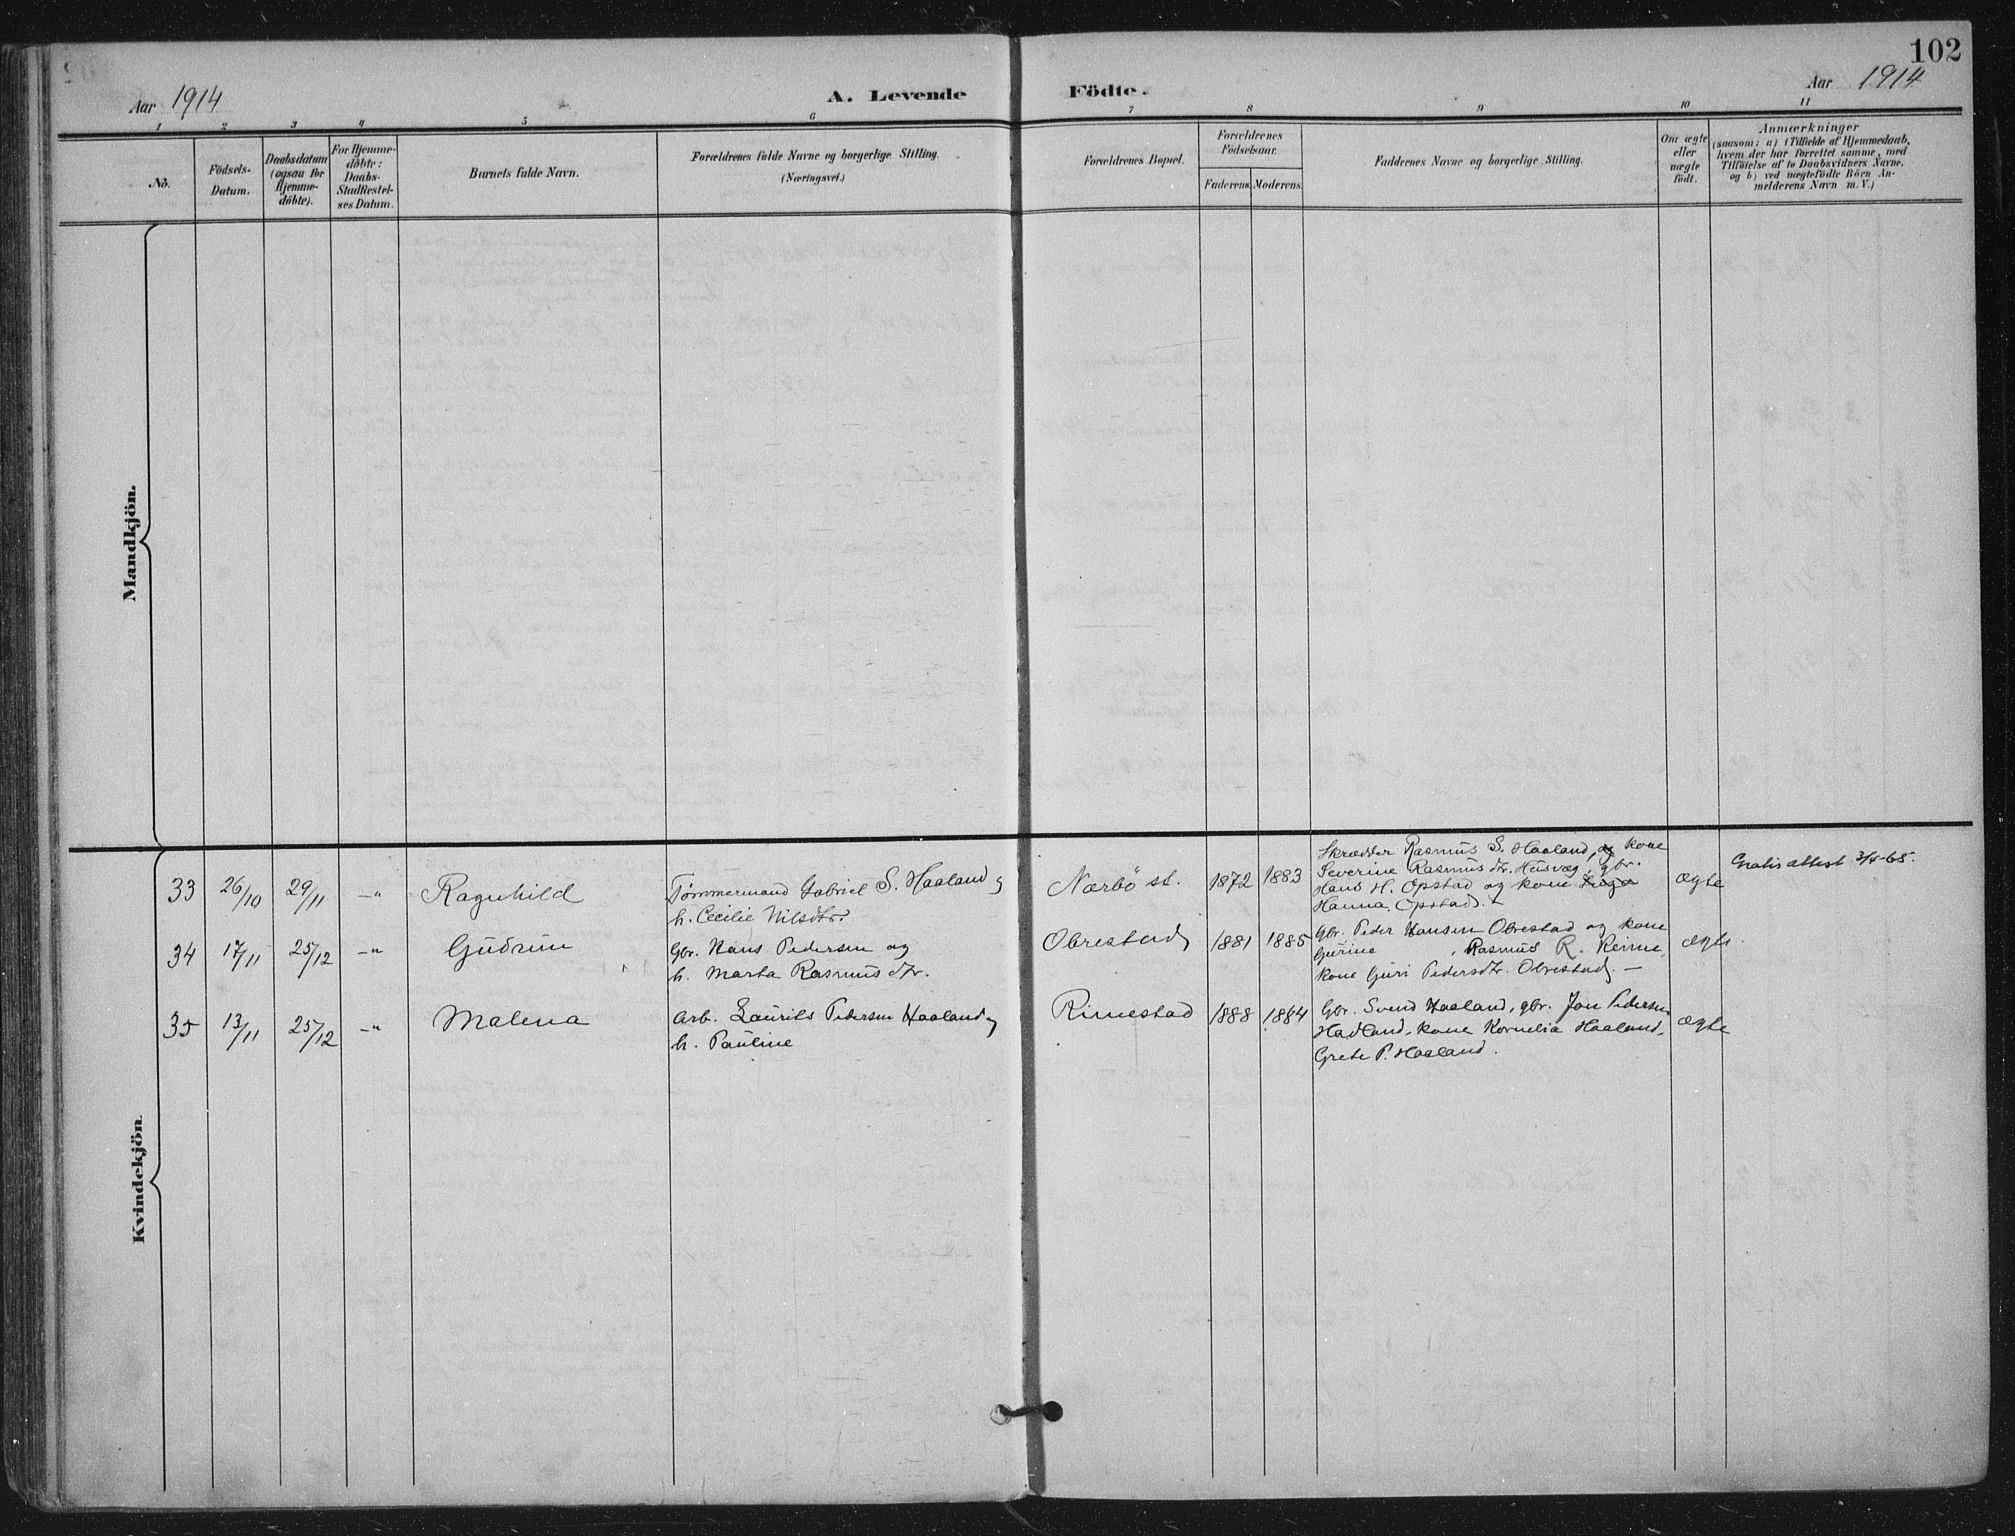 102
Aar 1914
A. Levende Födte.
Aar 1914
1 2 3 4 5 6 7 8 9 10 11
No.
Födsels-
Datum.
Daabsdatum
(ogsaa for
Hjemme-
döbte).
For Hjemme-
döbte:
Daabs-
Stadfæstel-
ses Datum.
Barnets fulde Navn.
Forældrenes fulde Navne og borgerlige Stilling.
(Næringsvei.)
Forældrenes Bopæl.
Forældrenes
Födselsaar.
Faderens. Moderens.
Faddernes Navne og borgerlige Stilling.
Om ægte
eller
uægte
födt.
Anmærkninger
(saasom: a) i Tilfælde af Hjemmedaab,
hvem der har forrettet samme, med
Tilföielse af to Daabsvidners Navne.
og b) ved uægtefödte Börn An-
melderens Navn m. V.)
Mandkjön.
Kvindekjön.
33 26/10 29/11 -"- Ragnhild
Tømmermand Gabriel S. Haaland og
h. Cecilie Nilsdtr.
Nærbö st. 1872 1883
Skrædder Rasmus S. Haaland, og kone
Severine Rasmusdtr. Husvæg, gbr.
Hans H. Opstad og kone
Hanna Opstad.
ægte
Gratis attest 3/5-65.
34 17/11 25/12 -"- Gudrun
Gbr. Hans Pedersen og
h. Marta Rasmusdtr.
Obrestad 1881 1885
Gbr. Peder Hansen Obrestad og kone
Gurine, Rasmus R. Reime,
kone Guri Pedersdtr. Obrestad. -
ægte
35 13/11 25/12 -"- Malena
Arb. Laurits Pedersen Haaland og
h. Pauline
Rimestad 1888 1884
Gbr. Svend Haaland, gbr. Jon Pedersen
Hadland, kone Kornelia Haaland,
Grete P. Haaland.
ægte